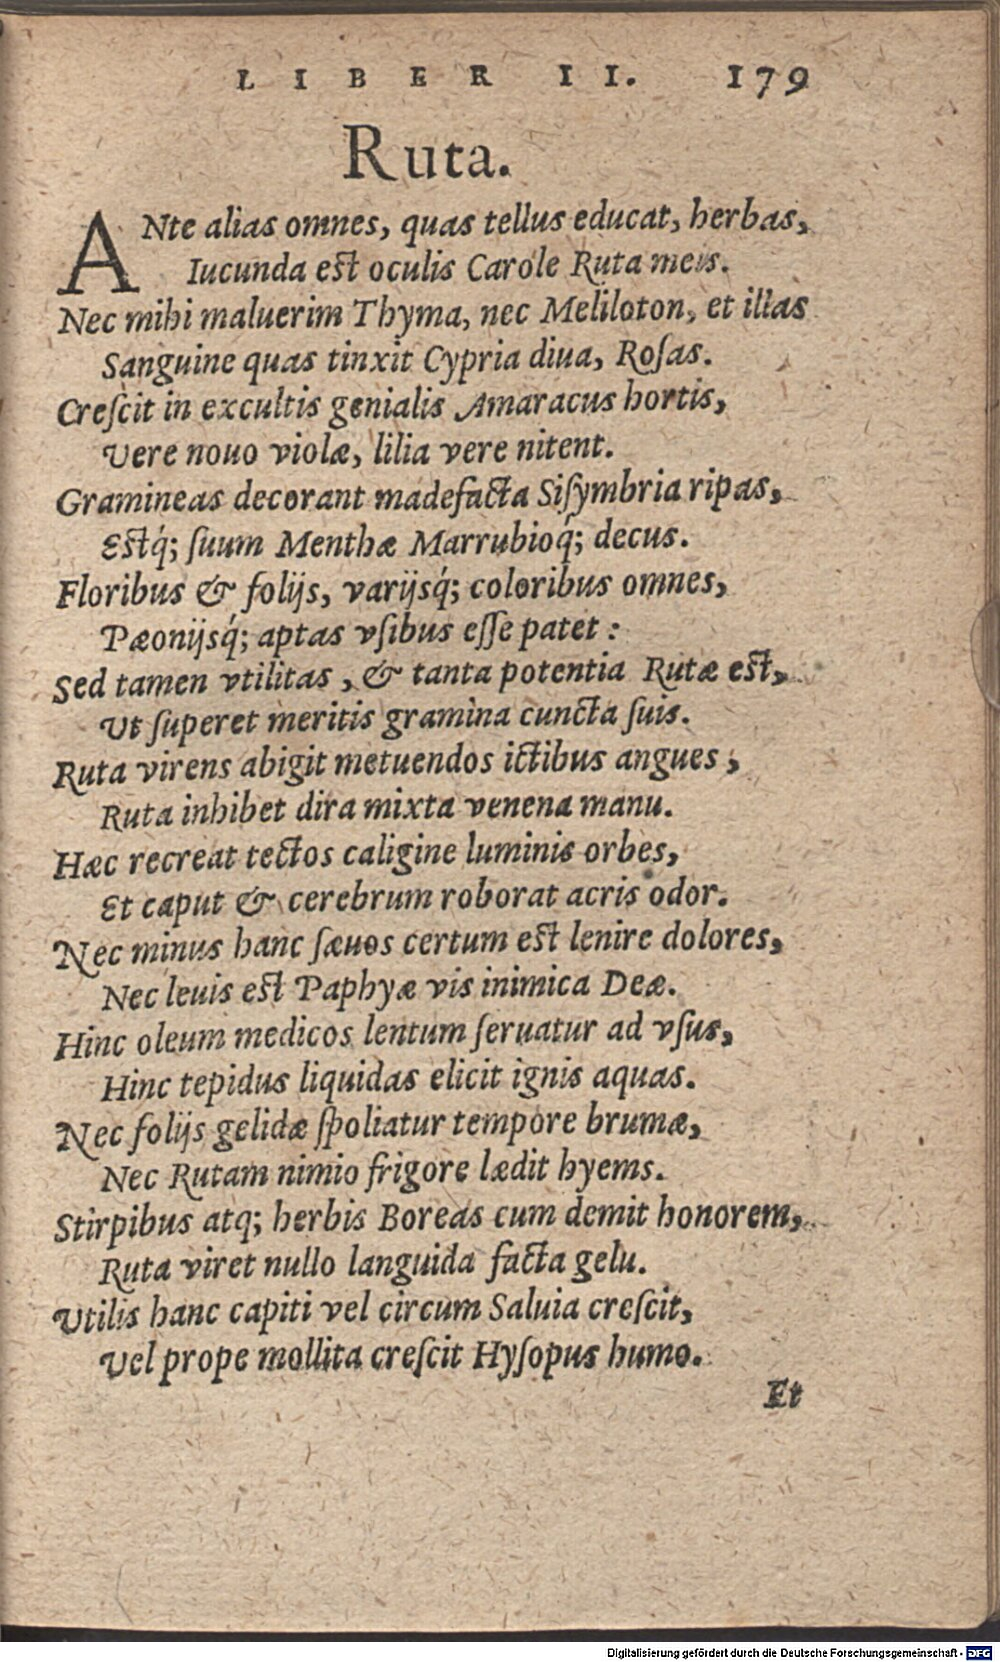 LIBER II. 179
Ruta.
ANte alias omnes, quas tellus educat, herbas,
Iucunda est oculis Carole Ruta meis.
Nec mihi maluerim Thyma, nec Meliloton, et illas
Sanguine quas tinxit Cypria diua, Roſas.
Creſcit in excultis genialis Amaracus hortis,
Vere nouo violæ, lilia vere nitent.
Gramineas decorant madefacta Siſymbria ripas,
Estq́; ſuum Menthæ Marrubioq́; decus.
Floribus & folijs, varijsq́; coloribus omnes,
Pæonijsq́; aptas vſibus eſſe patet:
Sed tamen vtilitas, & tanta potentia Rutæ est,
Vt ſuperet meritis gramina cuncta ſuis.
Ruta virens abigit metuendos ictibus angues,
Ruta inhibet dira mixta venena manu.
Hæc recreat tectos caligine luminis orbes,
Et caput & cerebrum roborat acris odor.
Nec minus hanc ſæuos certum est lenire dolores,
Nec leuis est Paphyæ vis inimica Deæ.
Hinc oleum medicos lentum ſeruatur ad vſus,
Hinc tepidus liquidas elicit ignis aquas.
Nec folijs gelidæ ſpoliatur tempore brumæ,
Nec Rutam nimio frigore lædit hyems.
Stirpibus atq; herbis Boreas cum demit honorem,
Ruta viret nullo languida facta gelu.
Vtilis hanc capiti vel circum Saluia creſcit,
Vel prope mollita creſcit Hyſopus humo.
Et
Digitalisierung gefördert durch die Deutsche Forschungsgemeinschaft - DFG